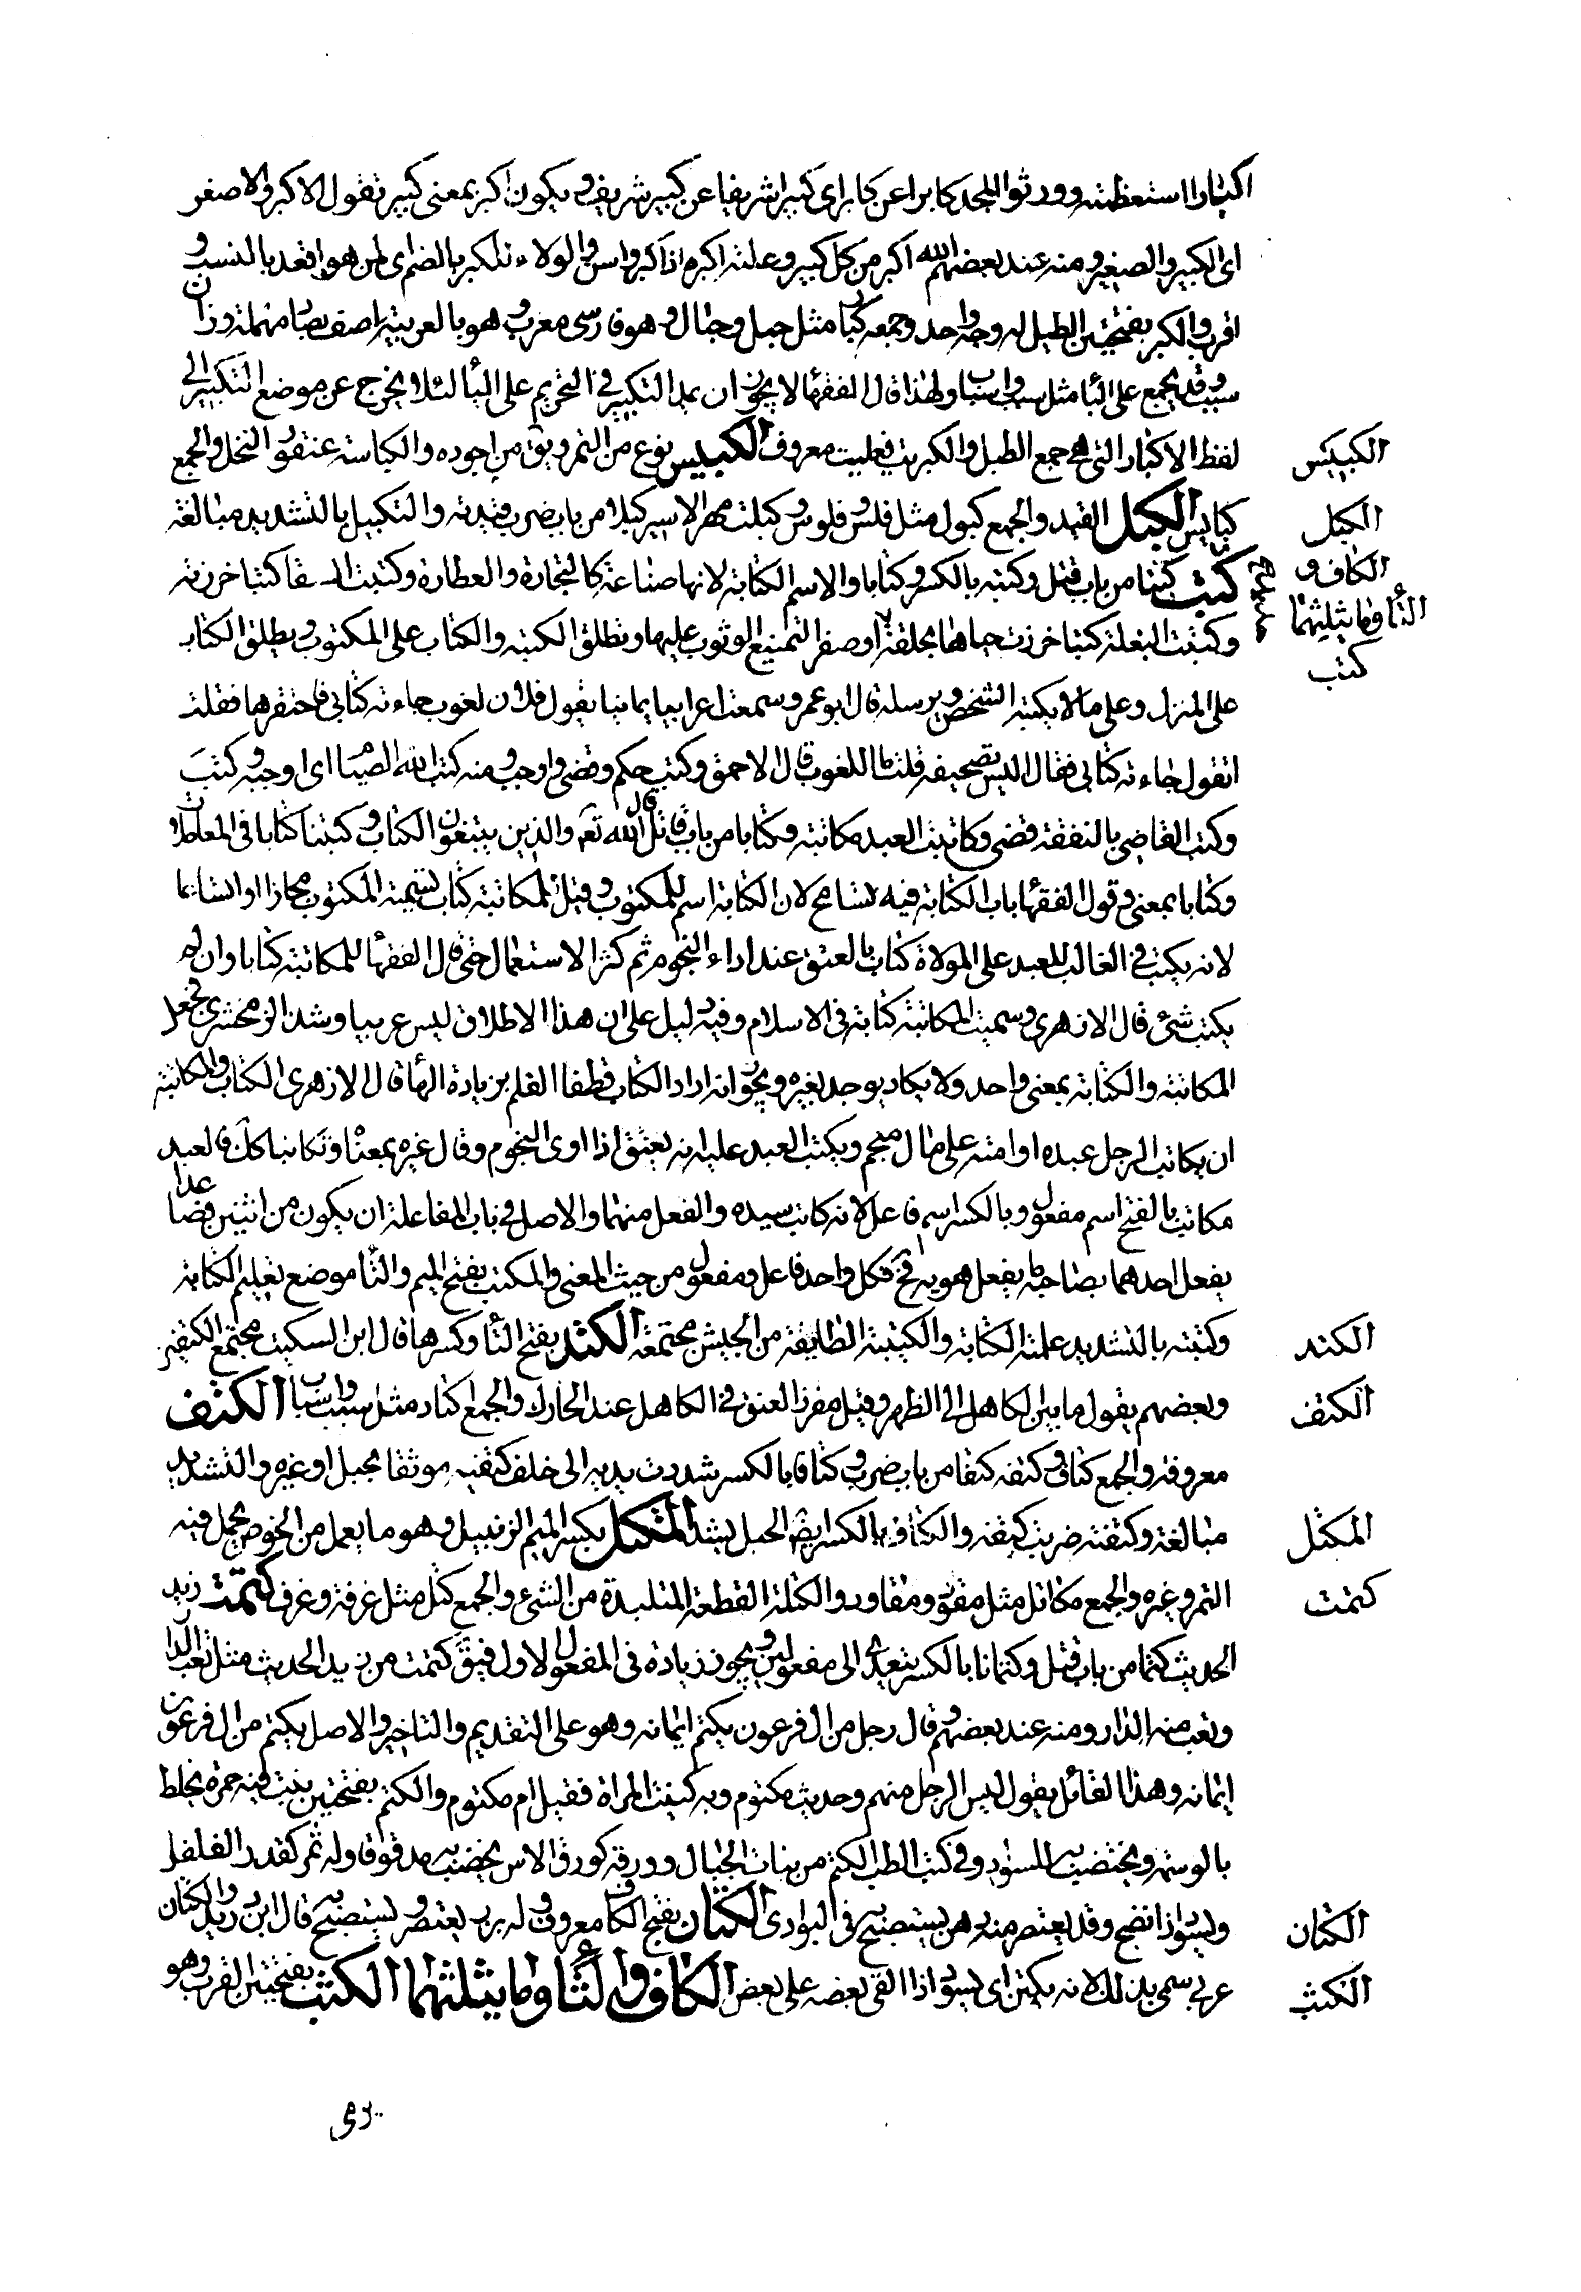 اكبارا استعظمته وورثوا المجد كابرا عن كابر اى كبيرا شريفا عن كبير شريف ويكون اكبر بمعنى كبير تقول الاكبر والاصغر
اى الكبير والصغير ومنه عند بعضهم الله اكبر من كل كبير وعلته اكبره اذا كبر واسن والولاء للكبر بالضم اى لمن هو اقعد بالنسب و
اقرب والكبر بفتحتين الطبل له وجه واحد وجمعه كبار مثل جبل وجبال وهو فارسى معرب وهو بالعربية اصف بصاد مهملة وزان
سبب وقد يجمع على اكبار مثل سبب واسباب ولهذا قال الفقها لا يجوز ان يمد التكبير فى التحريم على البا لئلا يخرج عن موضع التكبير الى
لفظ الاكبار التى هى جمع الطبل والكبريت فعليت معروف الكبيس نوع من التمر ويق من اجوده والكباسة عنقود النخل والجمع
الكبيس
كبايس الكبل القيد والجمع كبول مثل فلس وفلوس وكبلت الاسير كبلا من باب ضرب قيدته والتكبيل بالتشديد مبالغة
الكبل
الكاف و
التا وما يثلثهما
كتبت كتبا من باب قتل وكتبة بالكسر وكتابا والاسم الكتابة لانها صناعة كالتجارة والعطارة وكتبت السقا كتبا خرزته
كتب
وكتبت البغلة كتبا خرزت حياها بحلقة او صفر لتمنيع الوثوب عليها وتطلق الكتبة والكتاب على المكتوب ويطلق الكتاب
على المنزل وعلى ما لا يكتبه الشخص ويرسله قال ابو عمرو سمعت اعرابيا يمانيا يقول فلان لغوب جاءته كتابى فاحتقرها فقلت
اتقول جاءته كتابى فقال اليس بصحيفة قلت ما اللغوب قال الاحمق وكتب حكم وقضى واوجب ومنه كتب الله الصيام اى اوجبه وكتب
وكتب القاضى بالنفقة قضى وكاتبت العبد مكاتبة وكتابا من باب قاتل قال الله تع والذين يبتغون الكتاب وكتبنا كتابا فى المعاملات
وكتابا بمعنى وقول الفقها باب الكتابة فيه تسامح لان الكتابة اسم للمكتوب وقيل للمكاتبة كتاب تسمية المكتوب مجازا واتساعا
لانه يكتب فى الغالب للعبد على المولاة كتاب بالعتق عند اداء النجوم ثم كثر الاستعمال حتى قال الفقها للمكاتبة كتابا وان لم
يكتب شئ قال الازهرى وسميت المكاتبة كتابة فى الاسلام وفيه دليل على ان هذا الاطلاق ليس عربيا وشذ الزمخشرى فجعل
المكاتبة والكتابة بمعنى واحد ولا يكاد يوجد لغيره ويجوز انه اراد الكتاب فطفا القلم بزيادة الها قال الازهرى الكتاب والمكاتبة
ان يكاتب الرجل عبده او امته على مال منجم ويكتب العبد عليه انه يعتق اذا ادى النجوم وقال غيره بمعناه وتكاتبا كك فالعبد
مكاتب بالفتح اسم مفعول وبالكسر اسم فاعل لانه كاتب سيده والفعل منهما والاصل فى باب المفاعلة ان يكون من اثنين فصاعدا
يفعل احدهما بصاحبه ما يفعل هو به فح فكل واحد فاعل ومفعول من حيث المعنى والمكتب بفتح الميم والتا موضع تعليم الكتابة
وكتبته بالتشديد علمته الكتابة والكتيبة الطايفة من الجيش مجتمعة الكتد بفتح التا وكسرها قال ابن السكيت مجتمع الكتفين
الكتد
وبعضهم يقول ما بين الكاهل الى الظهر وقيل مغرز العنق فى الكاهل عند الحارك والجمع اكتاد مثل سبب واسباب الكتف
الكتف
معروفة والجمع كتاف وكتفه كتفا من باب ضرب وكتافا بالكسر شددت يديه الى خلف كتفيه موثقا بحبل او غيره والتشديد
مبالغة وكتفته ضربت كتفه والكتاف بالكسر ايضا الحبل يشد المكتل بكسر الميم الزنبيل وهو ما يعمل من الخوص يحمل فيه
المكتل
التمر وغيره والجمع مكاتل مثل مقود ومقاود والكتلة القطعة المتلبدة من الشئ والجمع كتل مثل غرفة وغرف كتمت زيد
كتمت
الحديث كتما من باب قتل وكتمانا بالكسر يتعدى الى مفعولين ويجوز زيادة فى المفعول الاول فيق كتمت من زيد الحديث مثل الدار
وبعت منه الدار ومنه عند بعضهم وقال رجل من ال فرعون يكتم ايمانه وهو على التقديم والتاخير والاصل يكتم من ال فرعون
ايمانه وهذا القائل يقول ليس الرجل منهم وحديث مكتوم وبه كنيت المراة فقيل ام مكتوم والكتم بفتحتين نبت فيه حمرة يخلط
بالوسمة ويختضب به للسواد وفى كتب الطب الكتم من نبات الجبال وورقه كورق الاس يخضب به مدقوقا وله ثمر كقدر الفلفل
ويسود اذا نضج وقد يعتصر منه دهن يستصبح به فى البوادى الكتان بفتح الكاف معروف وله بزر يعتصر ويستصبح به قال ابن دريد والكتان
الكتان
عربى سمى بذلك لانه يكتن اى يسود اذا القى بعضه على بعض الكاف والثا وما يثلثهما الكثب بفتحتين القرب وهو
الكثب
يرمى